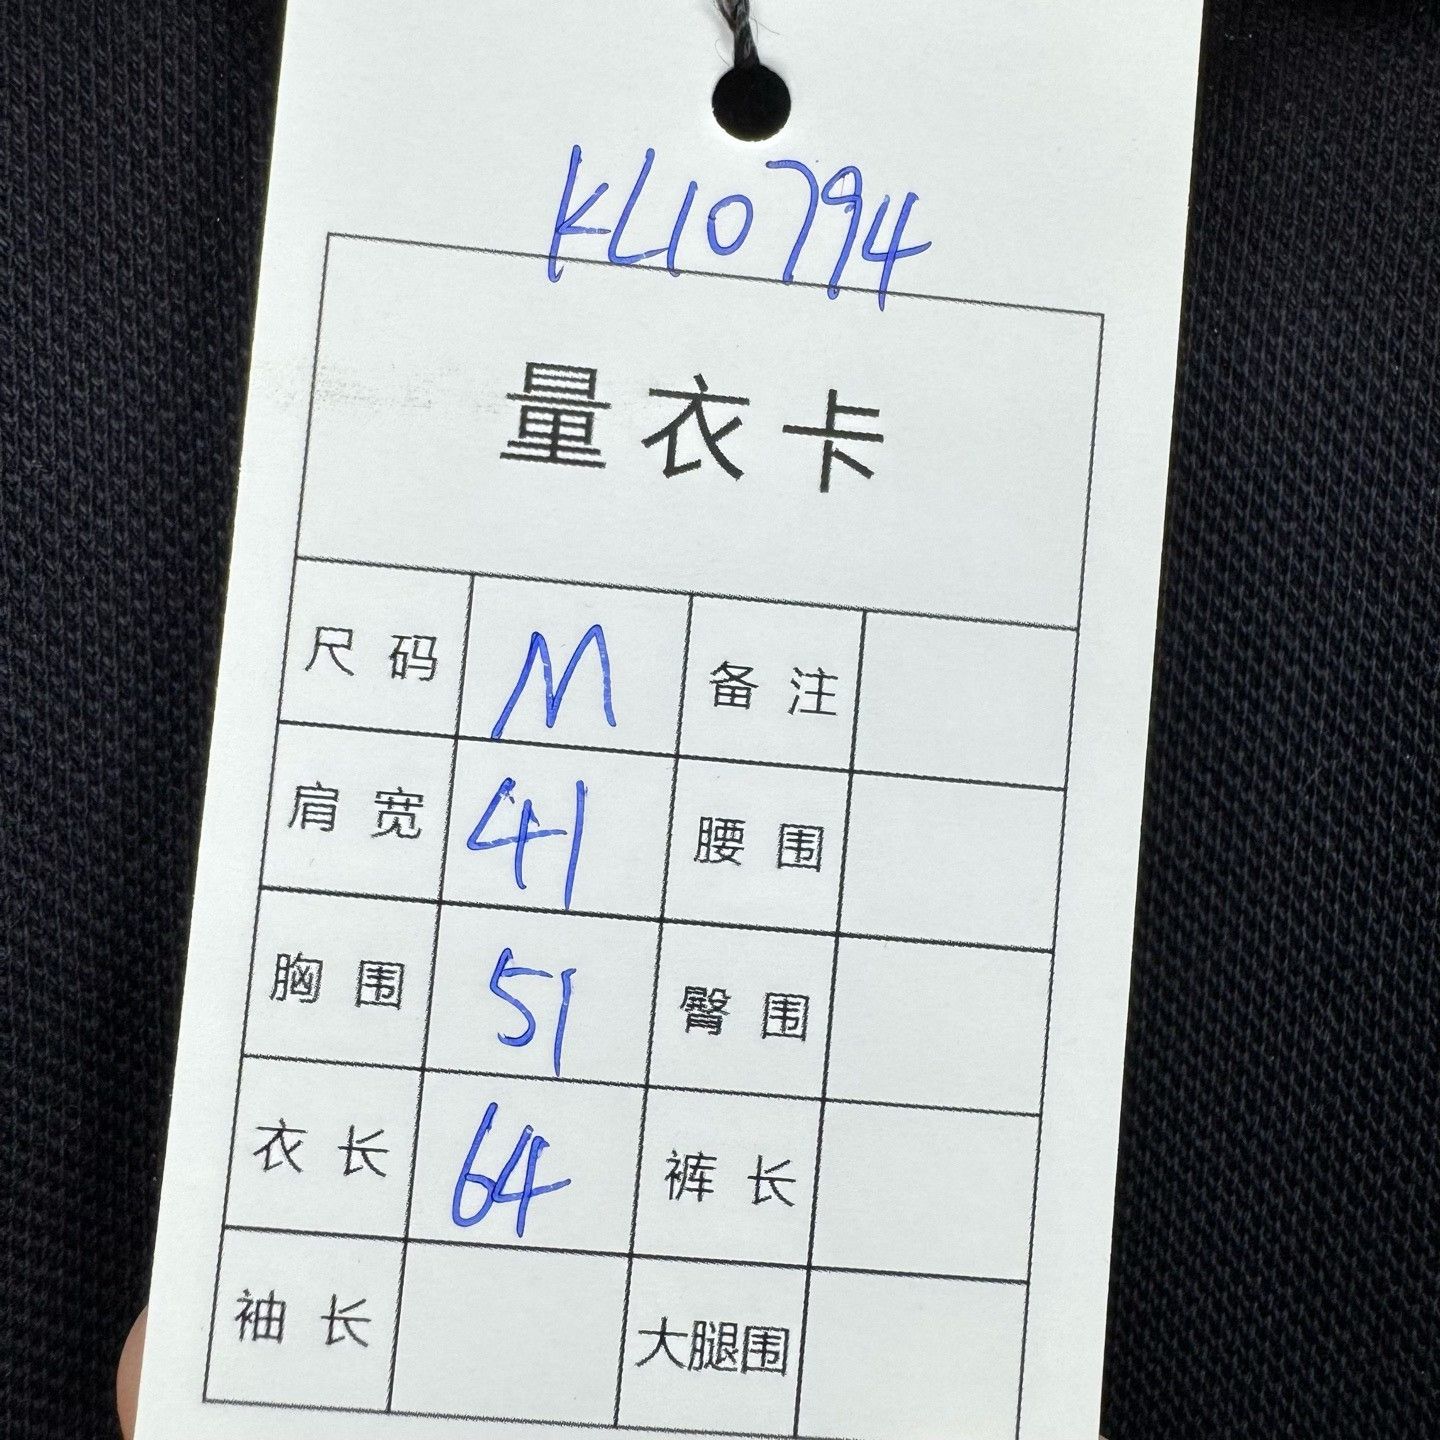 KL10794
量衣卡
尺码 M 备注
肩宽 41 腰围
胸围 51 臀围
衣长 64 裤长
袖长 大腿围